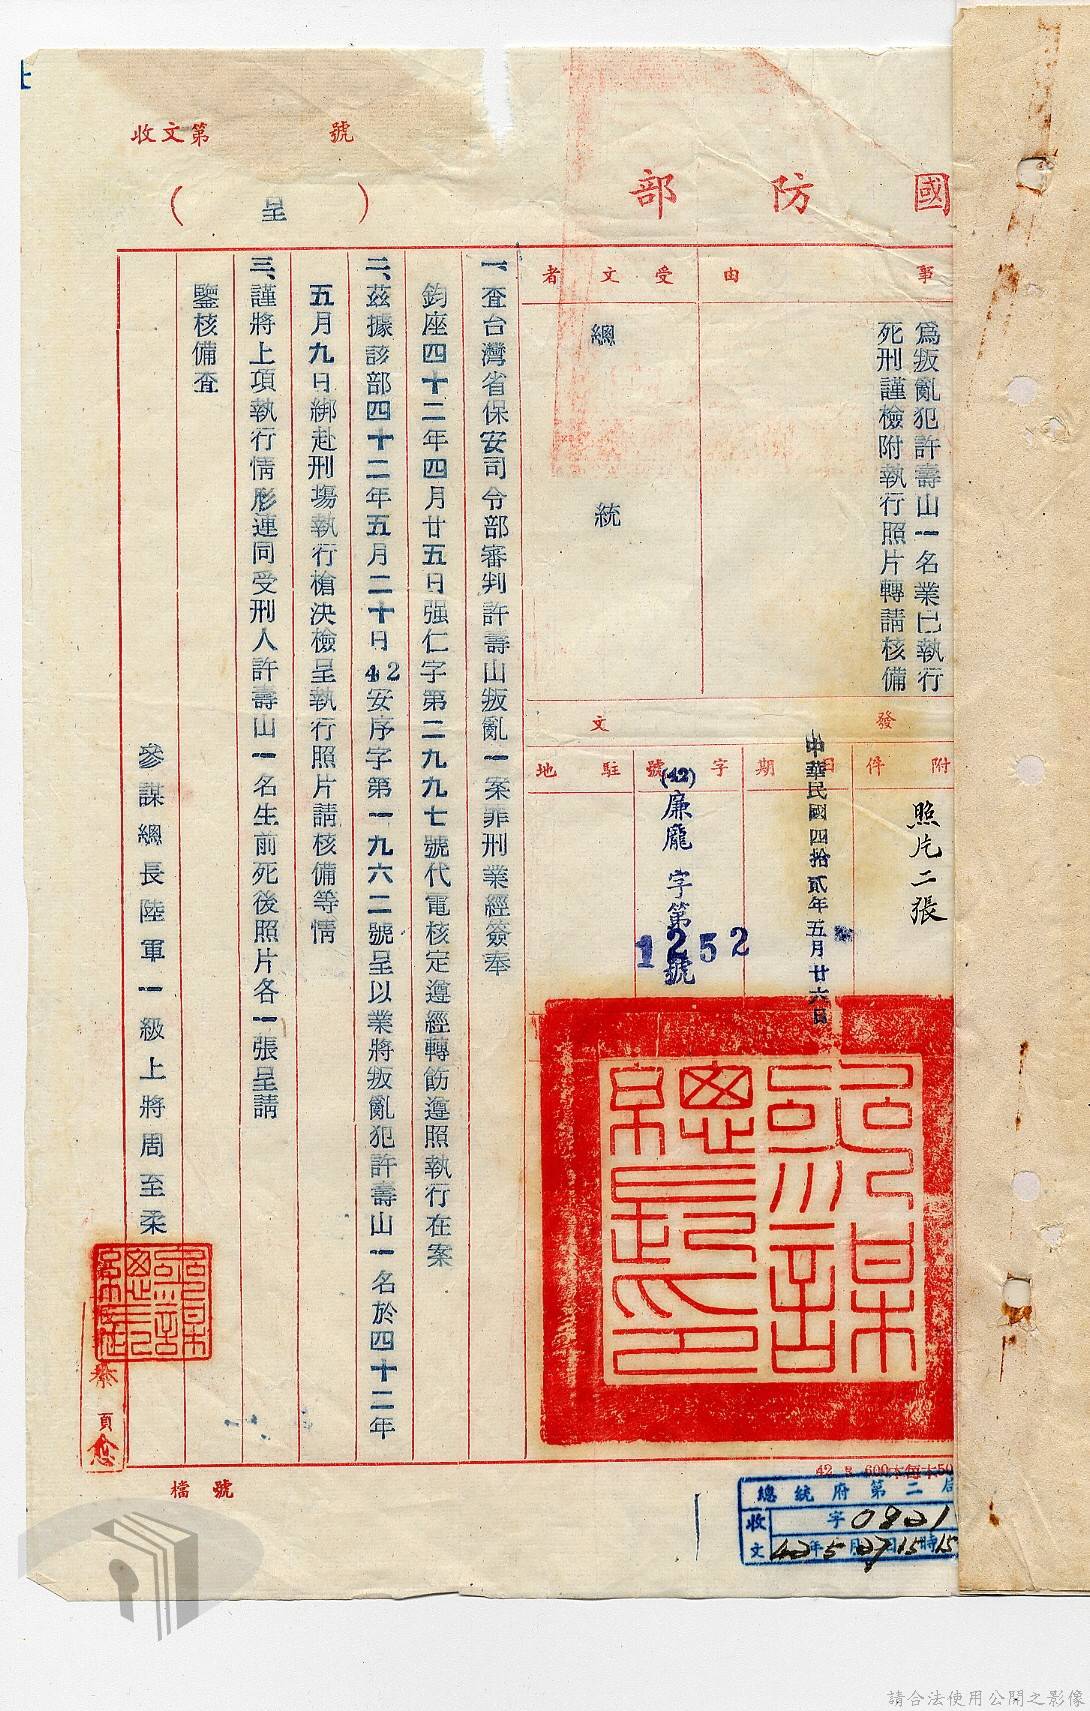 國防部
(呈)
收文第　　號
事由
為叛亂犯許壽山一名業已執行
死刑謹檢附執行照片轉請核備
受文者
總統
發文
附件
照片二張
日期
中華民國四拾貳年五月廿六日
字號
(42)廉龐字第1252號
駐地
一、查台灣省保安司令部審判許壽山叛亂一案罪刑業經簽奉
鈞座四十二年四月廿五日强仁字第二九九七號代電核定遵經轉飭遵照執行在案
二、茲據該部四十二年五月二十日42安序字第一九六二號呈以業將叛亂犯許壽山一名於四十二年
五月九日綁赴刑場執行槍決檢呈執行照片請核備等情
三、謹將上項執行情形連同受刑人許壽山一名生前死後照片各一張呈請
鑒核備查
參謀總長陸軍一級上將周至柔
參謀總長印
檔號
總統府第二局
收文
字0821
42年5月27日15時15
請合法使用公開之影像